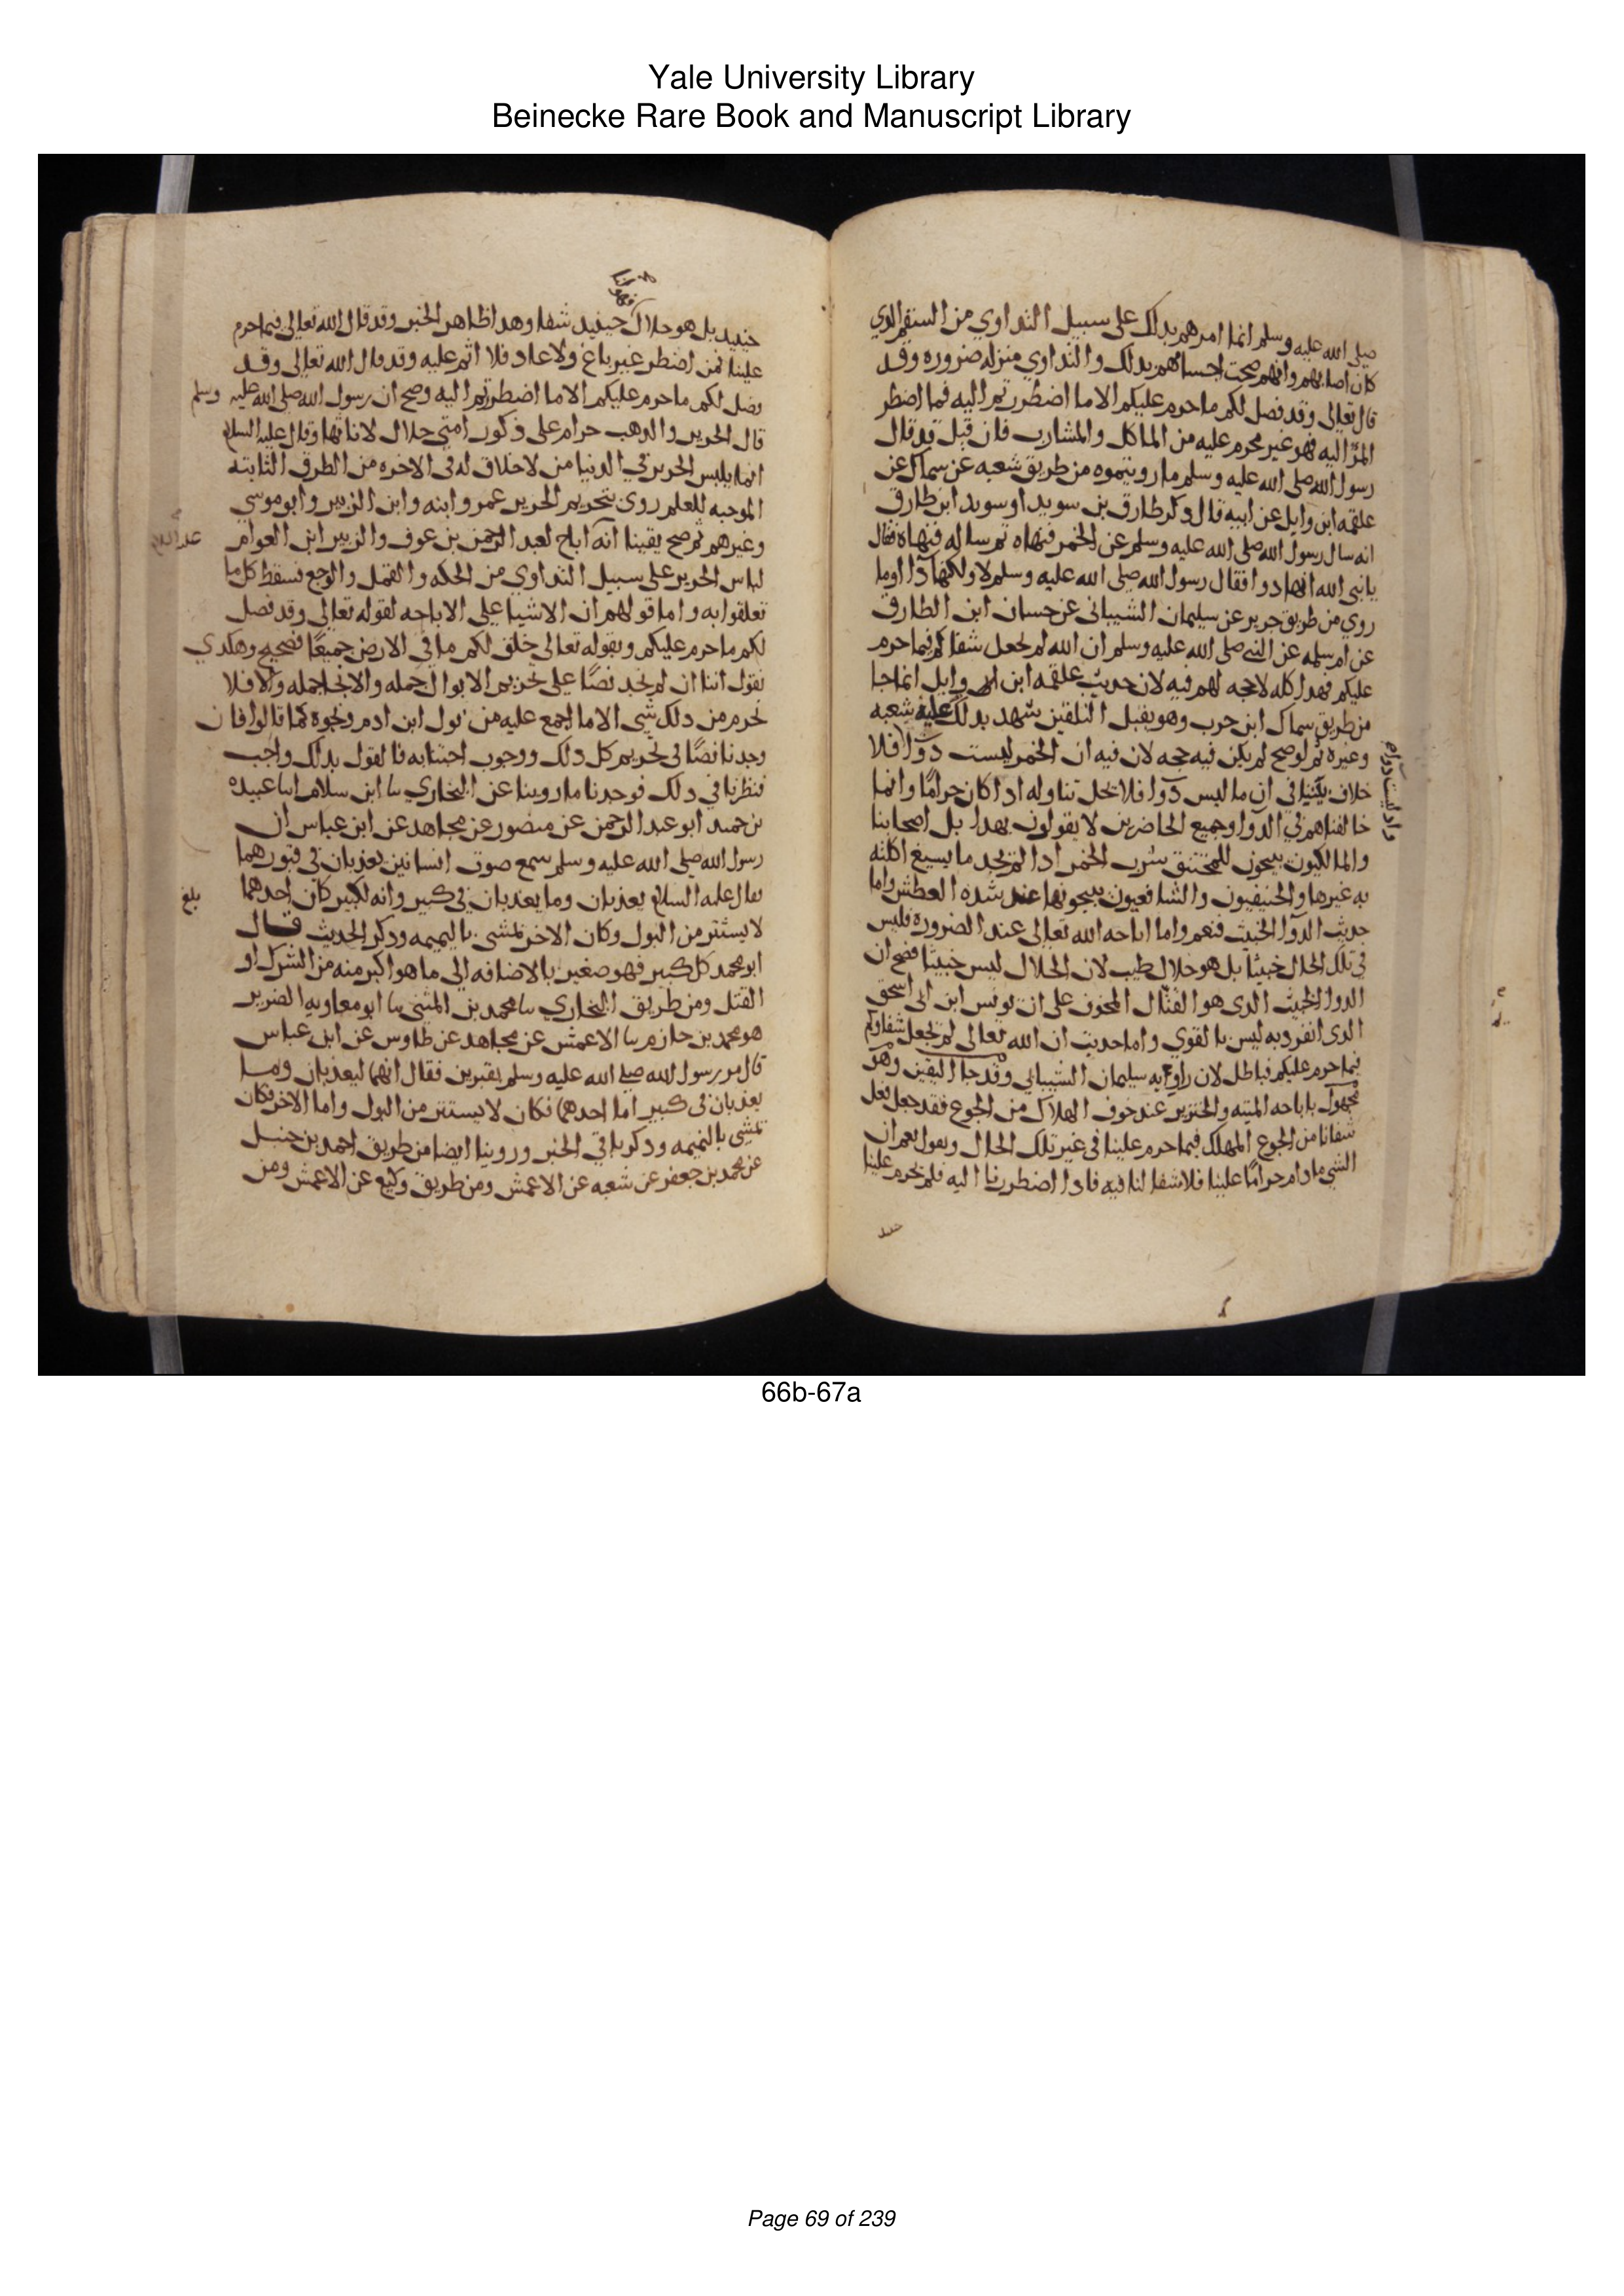 Yale University Library
Beinecke Rare Book and Manuscript Library
صلى الله عليه وسلم انما امرهم بدلك على سبيل التداوي من السقم الدي
كان اصابهم وانهم صحت اجسامهم بدلك والتداوي منزله ضروره وقد
قال تعالى وقد فصل لكم ما حرم عليكم الا ما اضطررتم اليه فما اضطر
المرَّ اليه فهو غير محرم عليه من الماكل والمشارب فان قيل قد قال
رسول الله صلى الله عليه وسلم ما رويتموه من طريق شعبه عن سماك عن
علقمه ابن وايل عن ابيه قال وذكر طارق بن سويد او سويد ابن طارق
انه سال رسول الله صلى الله عليه وسلم عن الخمر فنهاه ثم ساله فنهاه فقال
يا نبي الله انها دوا فقال رسول الله صلى الله عليه وسلم لا ولكنها دآ اوما
روي من طريق جرير عن سليمان الشيباني عن حسان ابن الطارق
عن ام سلمه عن النبي صلى الله عليه وسلم ان الله لم يجعل شفاكم فيما حرم
عليكم فهدا كله لا حجه لهم فيه لان حديث علقمه ابن وايل انما جا
من طريق سماك ابن حرب وهو يقبل التلقين شهد بدلك عليه شعبه
وغيره ثم لو صح لم يكن فيه حجه لان فيه ان الخمر ليست دوآ افلا
خلاف بيننا في ان ما ليس دوآ فلا يحل تناوله ادا كان حرامًا وانما
خالفناهم في الدوا وجميع الحاضرين لا يقولون بهدا بل اصحابنا
والمالكيون يبيحون للمختنق شرب الخمر ادا لم يجد ما يسيغ اكلته
به غيرها والحنيفيون والشافعيون يبيحونها عند شده العطش واما
حديث الدوآ الخبيث فنعم واما اباحه الله تعالى عند الضروره فليس
في تلك الحال خبيثا بل هو حلال طيب لان الحلال ليس خبيثا فصح ان
الدوا الخبيث الدى هو القتال المخوف على ان يونس ابن ابى اسحق
الدى انفرد به ليس بالقوي واما حديث ان الله تعالى لم يجعل شفاوكم
فيما حرم عليكم فباطل لان راويه سليمان الشيباني وهو
مجهول وقد جا اليقين باباحه الميته والخنزير عند خوف الهلاك من الجوع فقد جعل تعالى
شفانا من الجوع المهلك فيما حرم علينا في غير تلك الحال ونقول نعم ان
الشي ما دام حرامًا علينا فلا شفا لنا فيه فادا اضطررنا اليه فلم يحرم علينا
حينيد بل هو حلال حينيد شفا وهدا ظاهر الخبر وقد قال الله تعالى فيما حرم
علينا فمن اضطر غير باغ ولا عاد فلا اثم عليه وقد قال الله تعالى وقد
فصل لكم ما حرم عليكم الا ما اضطررتم اليه وصح ان رسول الله صلى الله عليه وسلم
قال الحرير والدهب حرام على ذكور امتي حلال لاناثها وقال عليه السلام
انما يلبس الحرير في الدنيا من لا خلاق له في الاخره من الطرق الثابته
الموجبه للعلم روى بتحريم الحرير عمر وابنه وابن الزبير وابو موسي
وغيرهم ثم صح يقينا انه اباح لعبد الرحمن بن عوف والزبير ابن العوام
لباس الحرير على سبيل التداوي من الحكه والقمل والوجع فسقط كل ما
تعلقوا به واما قولهم ان الاشيا على الاباحه لقوله تعالى وقد فصل
لكم ما حرم عليكم وبقوله تعالى خلق لكم ما في الارض جميعًا فصحيح وهكدي
نقول اننا ان لم نجد نصًا على تحريم الابوال جمله والانجا جمله والا فلا
نحرم من دلك شي الا ما اجمع عليه من بول ابن ادم ونجوه كما قالوا فان
وجدنا نصًا في تحريم كل دلك ووجوب اجتنابه فالقول بدلك واجب
فنظرنا في دلك فوجدنا ما روينا عن البخاري نا ابن سلام انا عبيده
بن حميد ابو عبد الرحمن عن منصور عن مجاهد عن ابن عباس ان
رسول الله صلى الله عليه وسلم سمع صوت انسانين يعذبان في قبورهما
فقال عليه السلام يعذبان وما يعذبان في كبير وانه لكبير كان احدهما
بلغ
لا يستتر من البول وكان الاخر يمشي بالنميمه ودكر الحديث قال
ابو محمد كل كبير فهو صغير بالاضافه الى ما هو اكبر منه من الشرك او
القتل ومن طريق البخاري نا محمد بن المثنى نا ابو معاويه الضرير
هو محمد بن حازم نا الاعمش عن مجاهد عن طاوس عن ابن عباس
قال مر رسول الله صلى الله عليه وسلم بقبرين فقال انهما ليعذبان وما
يعذبان في كبير اما احدهما فكان لا يستتر من البول واما الاخر فكان
يمشي بالنميمه ودكر باقي الخبر وروينا ايضا من طريق احمد بن حنبل
عن محمد بن جعفر عن شعبه عن الاعمش ومن طريق وكيع عن الاعمش ومن
66b-67a
Page 69 of 239